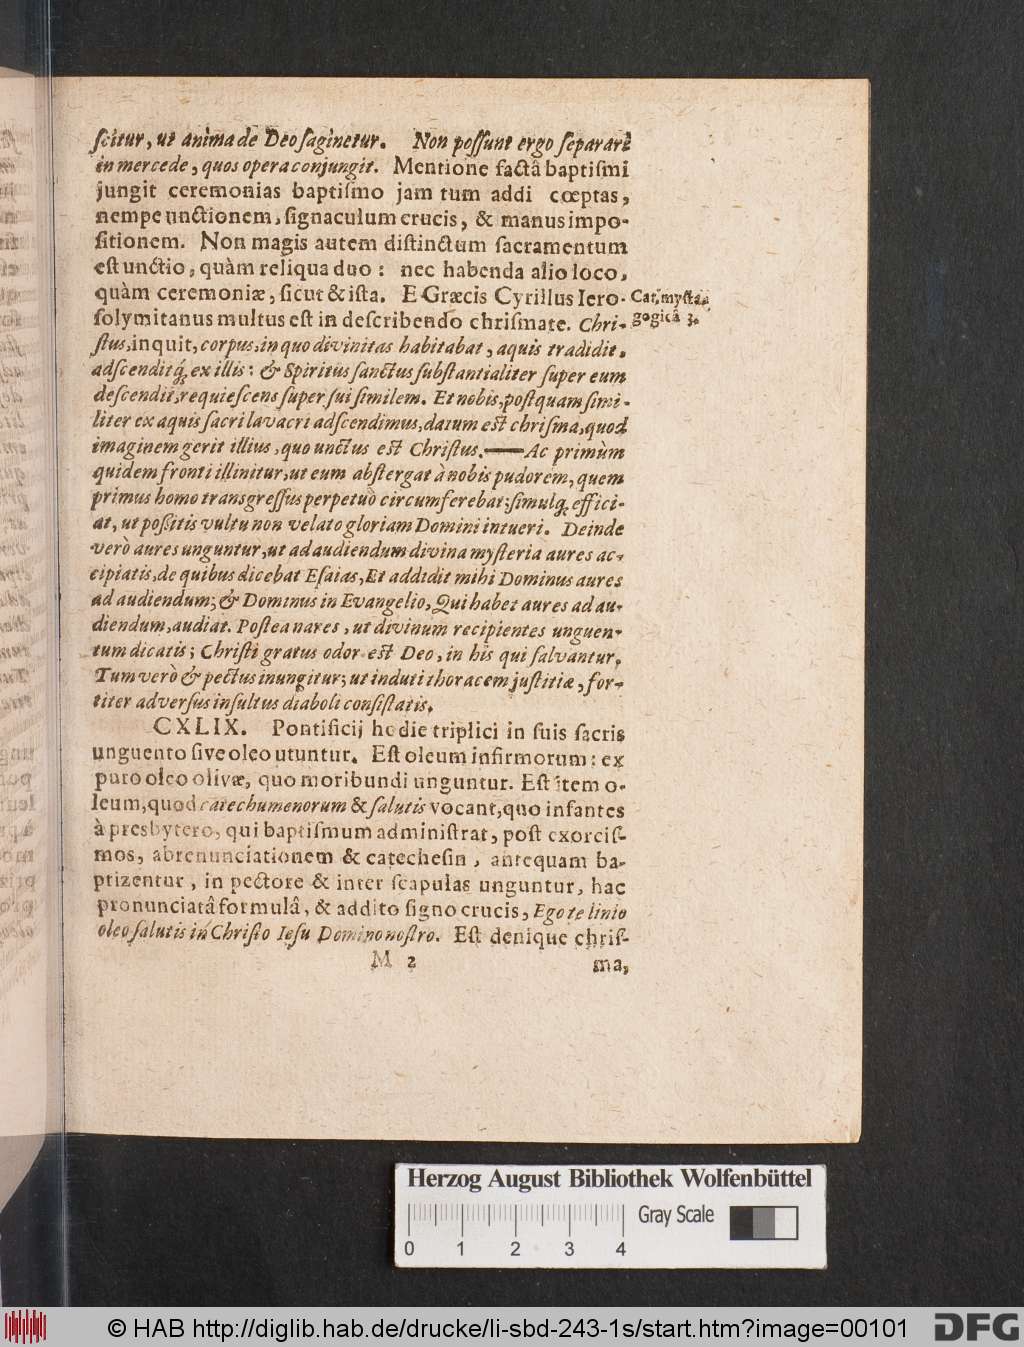 ſcitur, ut anima de Deo ſaginetur. Non poſſunt ergo ſeparari
in mercede, quos opera conjungit. Mentione factâ baptiſmi
jungit ceremonias baptiſmo jam tum addi cœptas,
nempe unctionem, ſignaculum crucis, & manus impo-
ſitionem. Non magis autem diſtinctum ſacramentum
eſt unctio, quàm reliqua duo: nec habenda alio loco,
quàm ceremoniæ, ſicut & iſta. E Græcis Cyrillus Iero-
Cat. myſta-
ſolymitanus multus eſt in deſcribendo chriſmate. Chri-
gogicâ 3.
ſtus, inquit, corpus, in quo divinitas habitabat, aquis tradidit.
adſcenditq́; ex illis: & Spiritus ſanctus ſubſtantialiter ſuper eum
deſcendit, requieſcens ſuper ſui ſimilem. Et nobis, poſtquam ſimi-
liter ex aquis ſacri lavacri adſcendimus, datum eſt chriſma, quod
imaginem gerit illius, quo unctus eſt Chriſtus.—— Ac primùm
quidem fronti illinitur, ut eum abſtergat à nobis pudorem, quem
primus homo transgreſſus perpetuò circumferebat; ſimulq; effici-
at, ut poßitis vultu non velato gloriam Domini intueri. Deinde
verò aures unguntur, ut ad audiendum divina myſteria aures ac-
cipiatis, de quibus dicebat Eſaias, Et addidit mihi Dominus aures
ad audiendum; & Dominus in Evangelio, Qui habet aures ad au-
diendum, audiat. Poſtea nares, ut divinum recipientes unguen-
tum dicatis; Chriſti gratus odor eſt Deo, in his qui ſalvantur.
Tum verò & pectus inungitur; ut induti thoracem juſtitiæ, for-
titer adverſus inſultus diaboli conſiſtatis.
CXLIX. Pontificij hodie triplici in ſuis ſacris
unguento ſive oleo utuntur. Eſt oleum infirmorum: ex
puro oleo olivæ, quo moribundi unguntur. Eſt item o-
leum, quod catechumenorum & ſalutis vocant, quo infantes
à presbytero, qui baptiſmum adminiſtrat, poſt exorciſ-
mos, abrenunciationem & catecheſin, antequam ba-
ptizentur, in pectore & inter ſcapulas unguntur, hac
pronunciatâ formulâ, & addito ſigno crucis, Ego te linio
oleo ſalutis in Chriſto Ieſu Domino noſtro. Eſt denique chriſ-
M 2
ma,
Herzog August Bibliothek Wolfenbüttel
Gray Scale
0 1 2 3 4
© HAB http://diglib.hab.de/drucke/li-sbd-243-1s/start.htm?image=00101
DFG